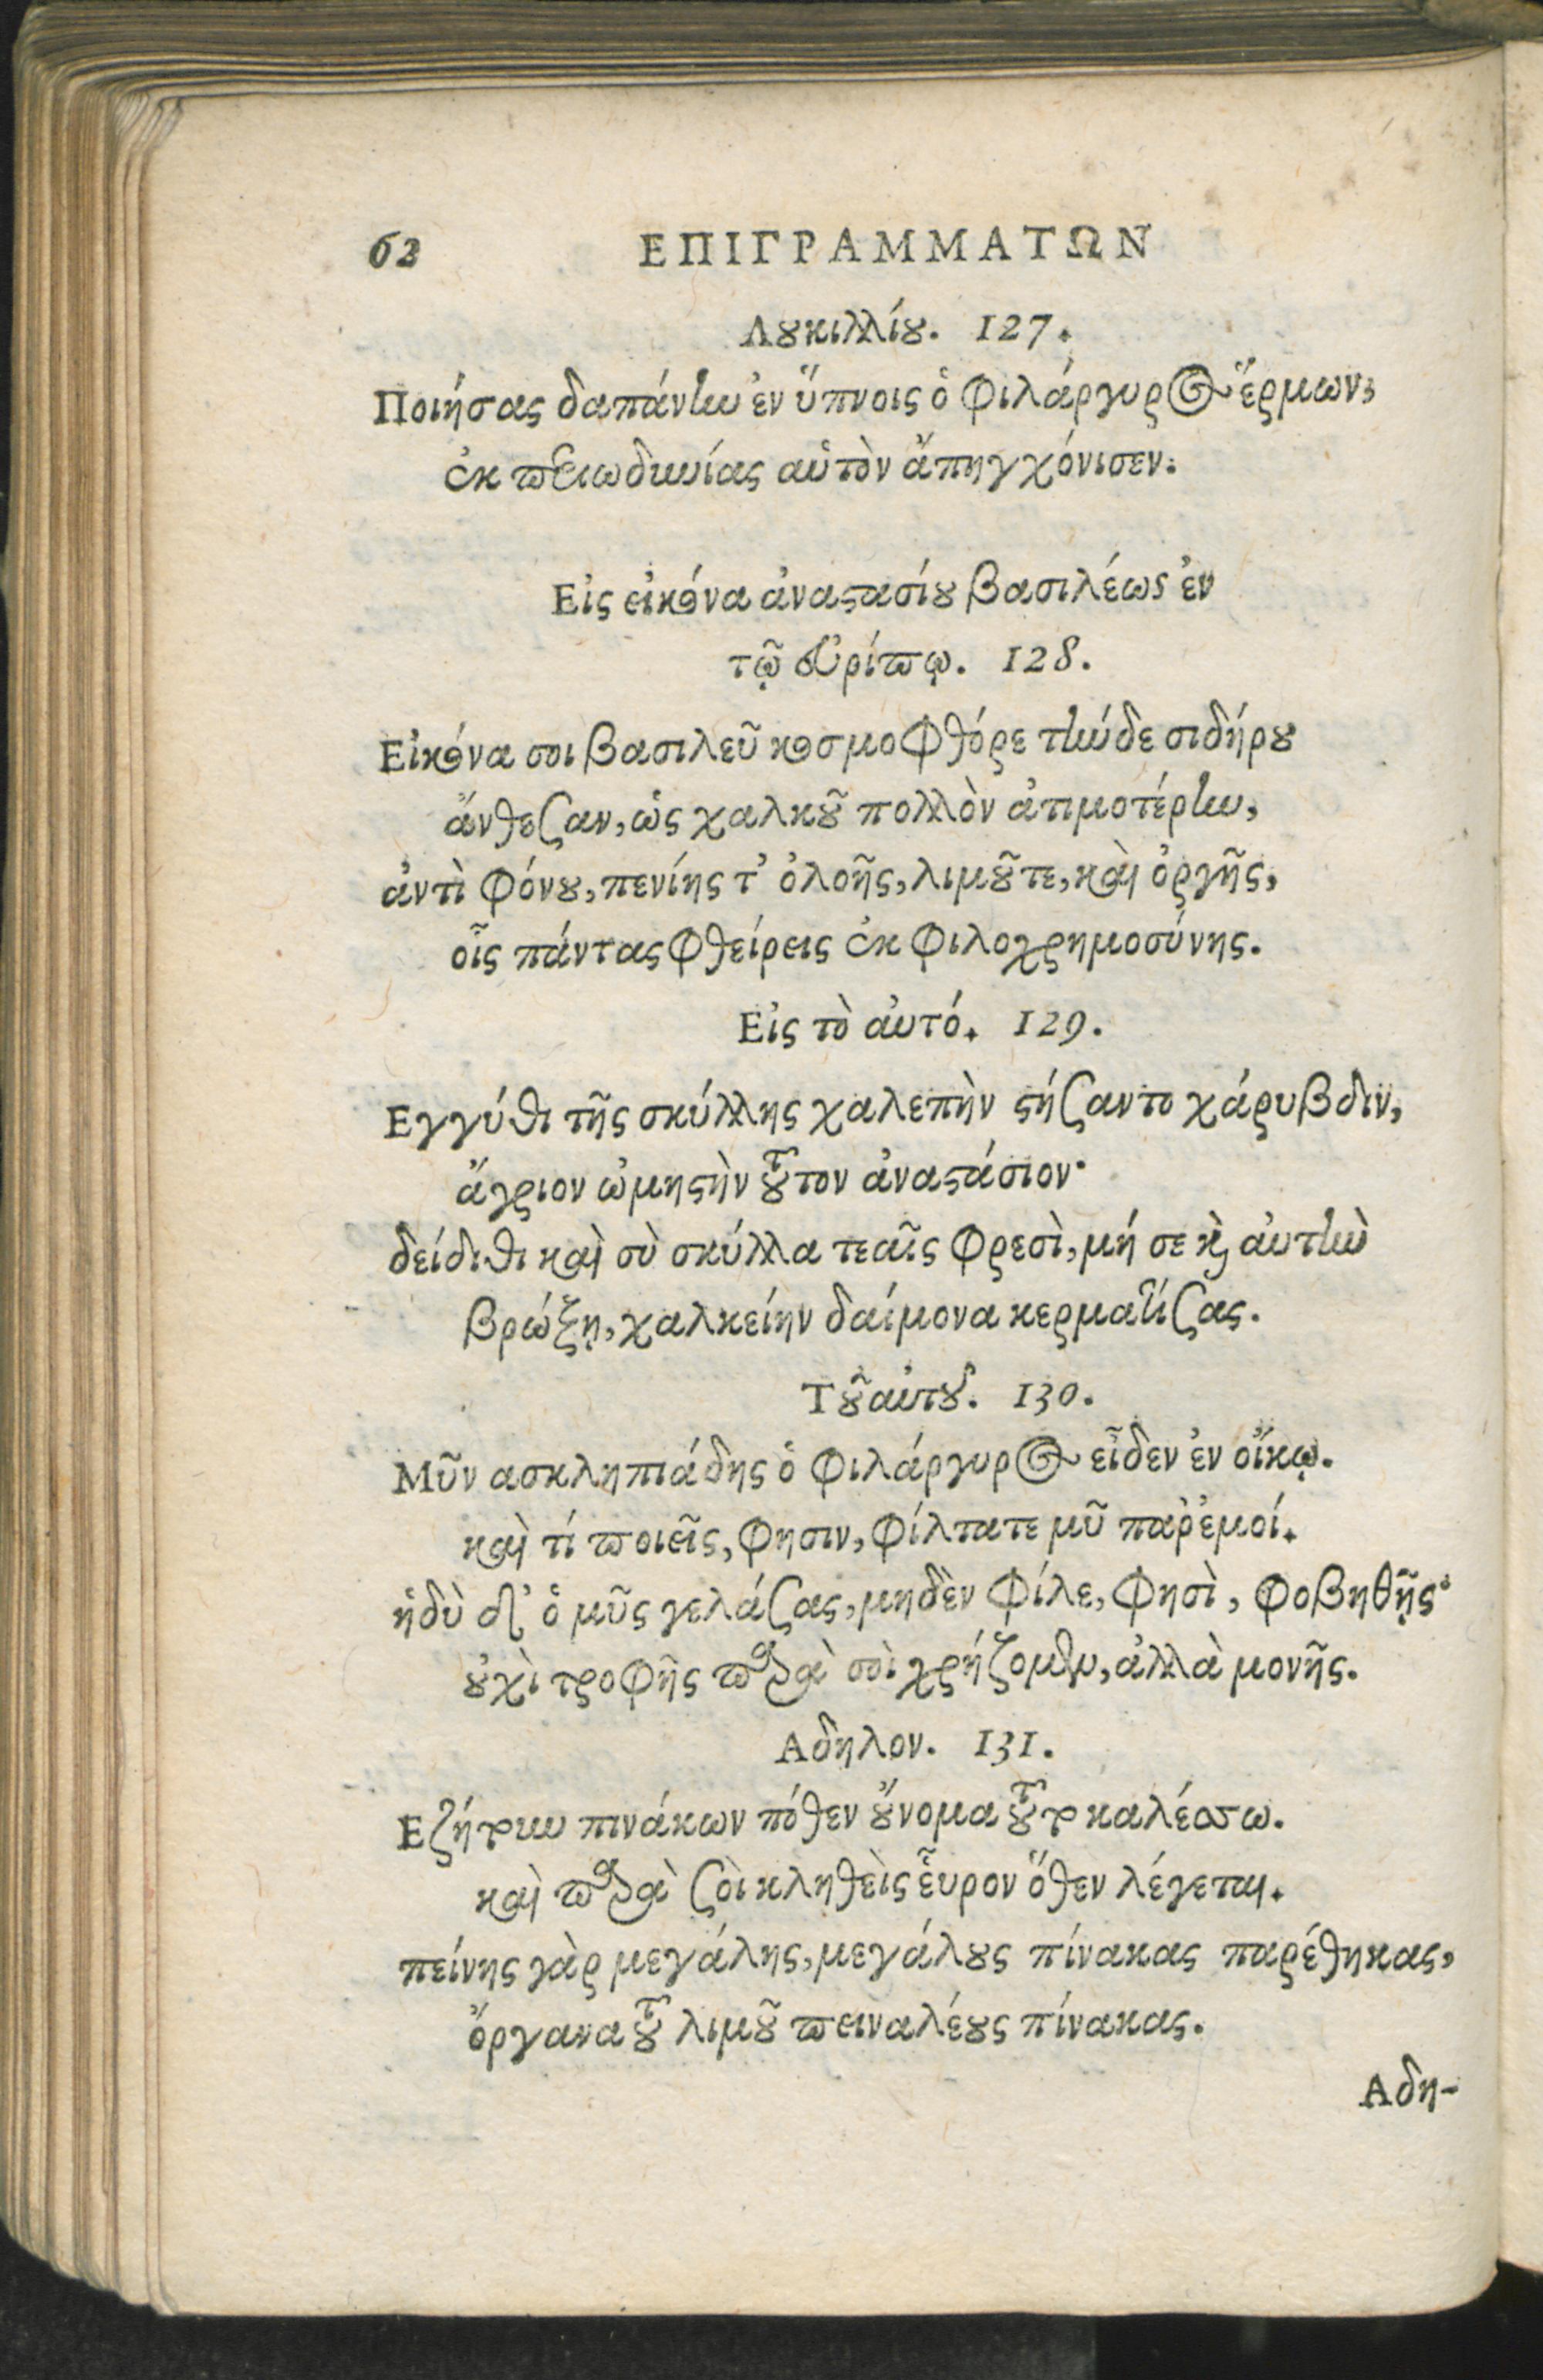 62 ΕΠΙΓΡΑΜΜΑΤΩΝ
Λουκιλλίου. 127.
Ποιήσας δαπάνην ἐν ὕπνοις ὁ φιλάργυρος ἕρμων,
ἐκ περιωδυνίας αὑτὸν ἄπηγχόνισεν.
Εἰς εἰκόνα ἀναστασίου βασιλέως ἐν
τῷ εὐρίπῳ. 128.
Εἰκόνα σοι βασιλεῦ κοσμοφθόρε τήνδε σιδήρου
ἄνθεσαν, ὡς χαλκοῦ πολλὸν ἀτιμοτέρην,
ἀντὶ φόνου, πενίης τ' ὀλοῆς, λιμοῦ τε, καὶ ὀργῆς,
οἷς πάντας φθείρεις ἐκ φιλοχρημοσύνης.
Εἰς τὸ ἀυτό. 129.
Εγγύθι τῆς σκύλλης χαλεπὴν στήσαντο χάρυβδιν,
ἄγριον ὠμηστὴν τοῦτον ἀναστάσιον·
δείδιθι καὶ σὺ σκύλλα τεαῖς φρεσὶ, μή σε καὶ ἀυτὴν
βρώξῃ, χαλκείην δαίμονα κερματίσας.
Τοῦ αὐτοῦ. 130.
Μῦν ασκληπιάδης ὁ φιλάργυρος εἶδεν ἐν οἴκῳ.
καὶ τί ποιεῖς, φησιν, φίλτατε μῦ παρ' ἐμοί.
ἡδὺ δ' ὁ μῦς γελάσας, μηδὲν φίλε, φησὶ, φοβηθῇς·
οὐχὶ τροφῆς παρὰ σοὶ χρήζομεν, ἀλλὰ μονῆς.
Αδηλον. 131.
Εζήτουν πινάκων πόθεν οὔνομα τοῦτο καλέσσω.
καὶ παρὰ σοὶ κληθεὶς εὗρον ὅθεν λέγεται.
πείνης γὰρ μεγάλης, μεγάλους πίνακας παρέθηκας,
ὄργανα τοῦ λιμοῦ πειναλέους πίνακας.
Αδη-